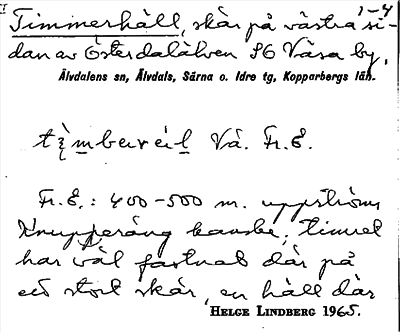 1-4
Timmerhäll, skär på västra si-
dan av Österdalälven SO Våsa by,
Älvdalens sn, Älvdals, Särna o. Idre tg, Kopparbergs län.
Vå. Fr. E.
Fr. E.: 400-500 m. uppströms
kanske, timret
har väl fastnat där på
ett stort skär, en häll där
HELGE LINDBERG 1965.